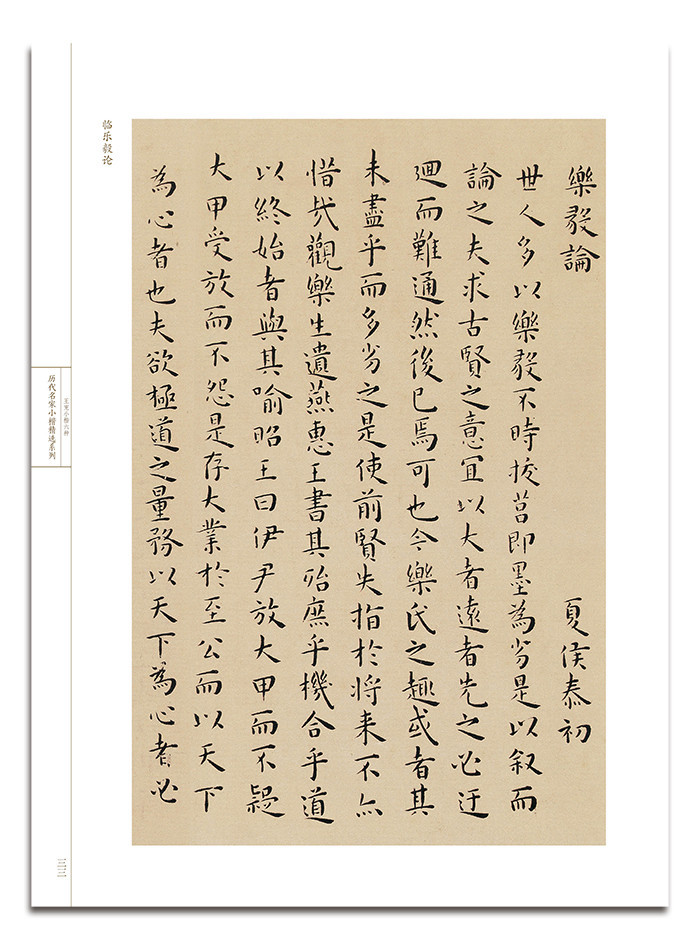 临乐毅论
樂毅論 夏侯泰初
世人多以樂毅不時拔莒即墨為劣是以叙而
論之夫求古賢之意宜以大者遠者先之必迂
迴而難通然後已焉可也今樂氏之趣或者其
未盡乎而多劣之是使前賢失指於將来不亦
惜哉觀樂生遺燕惠王書其殆庶乎機合乎道
以終始者與其喻昭王曰伊尹放大甲而不疑
大甲受放而不怨是存大業於至公而以天下
為心者也夫欲極道之量務以天下為心者必
王宠小楷六种
历代名家小楷精选系列
三三